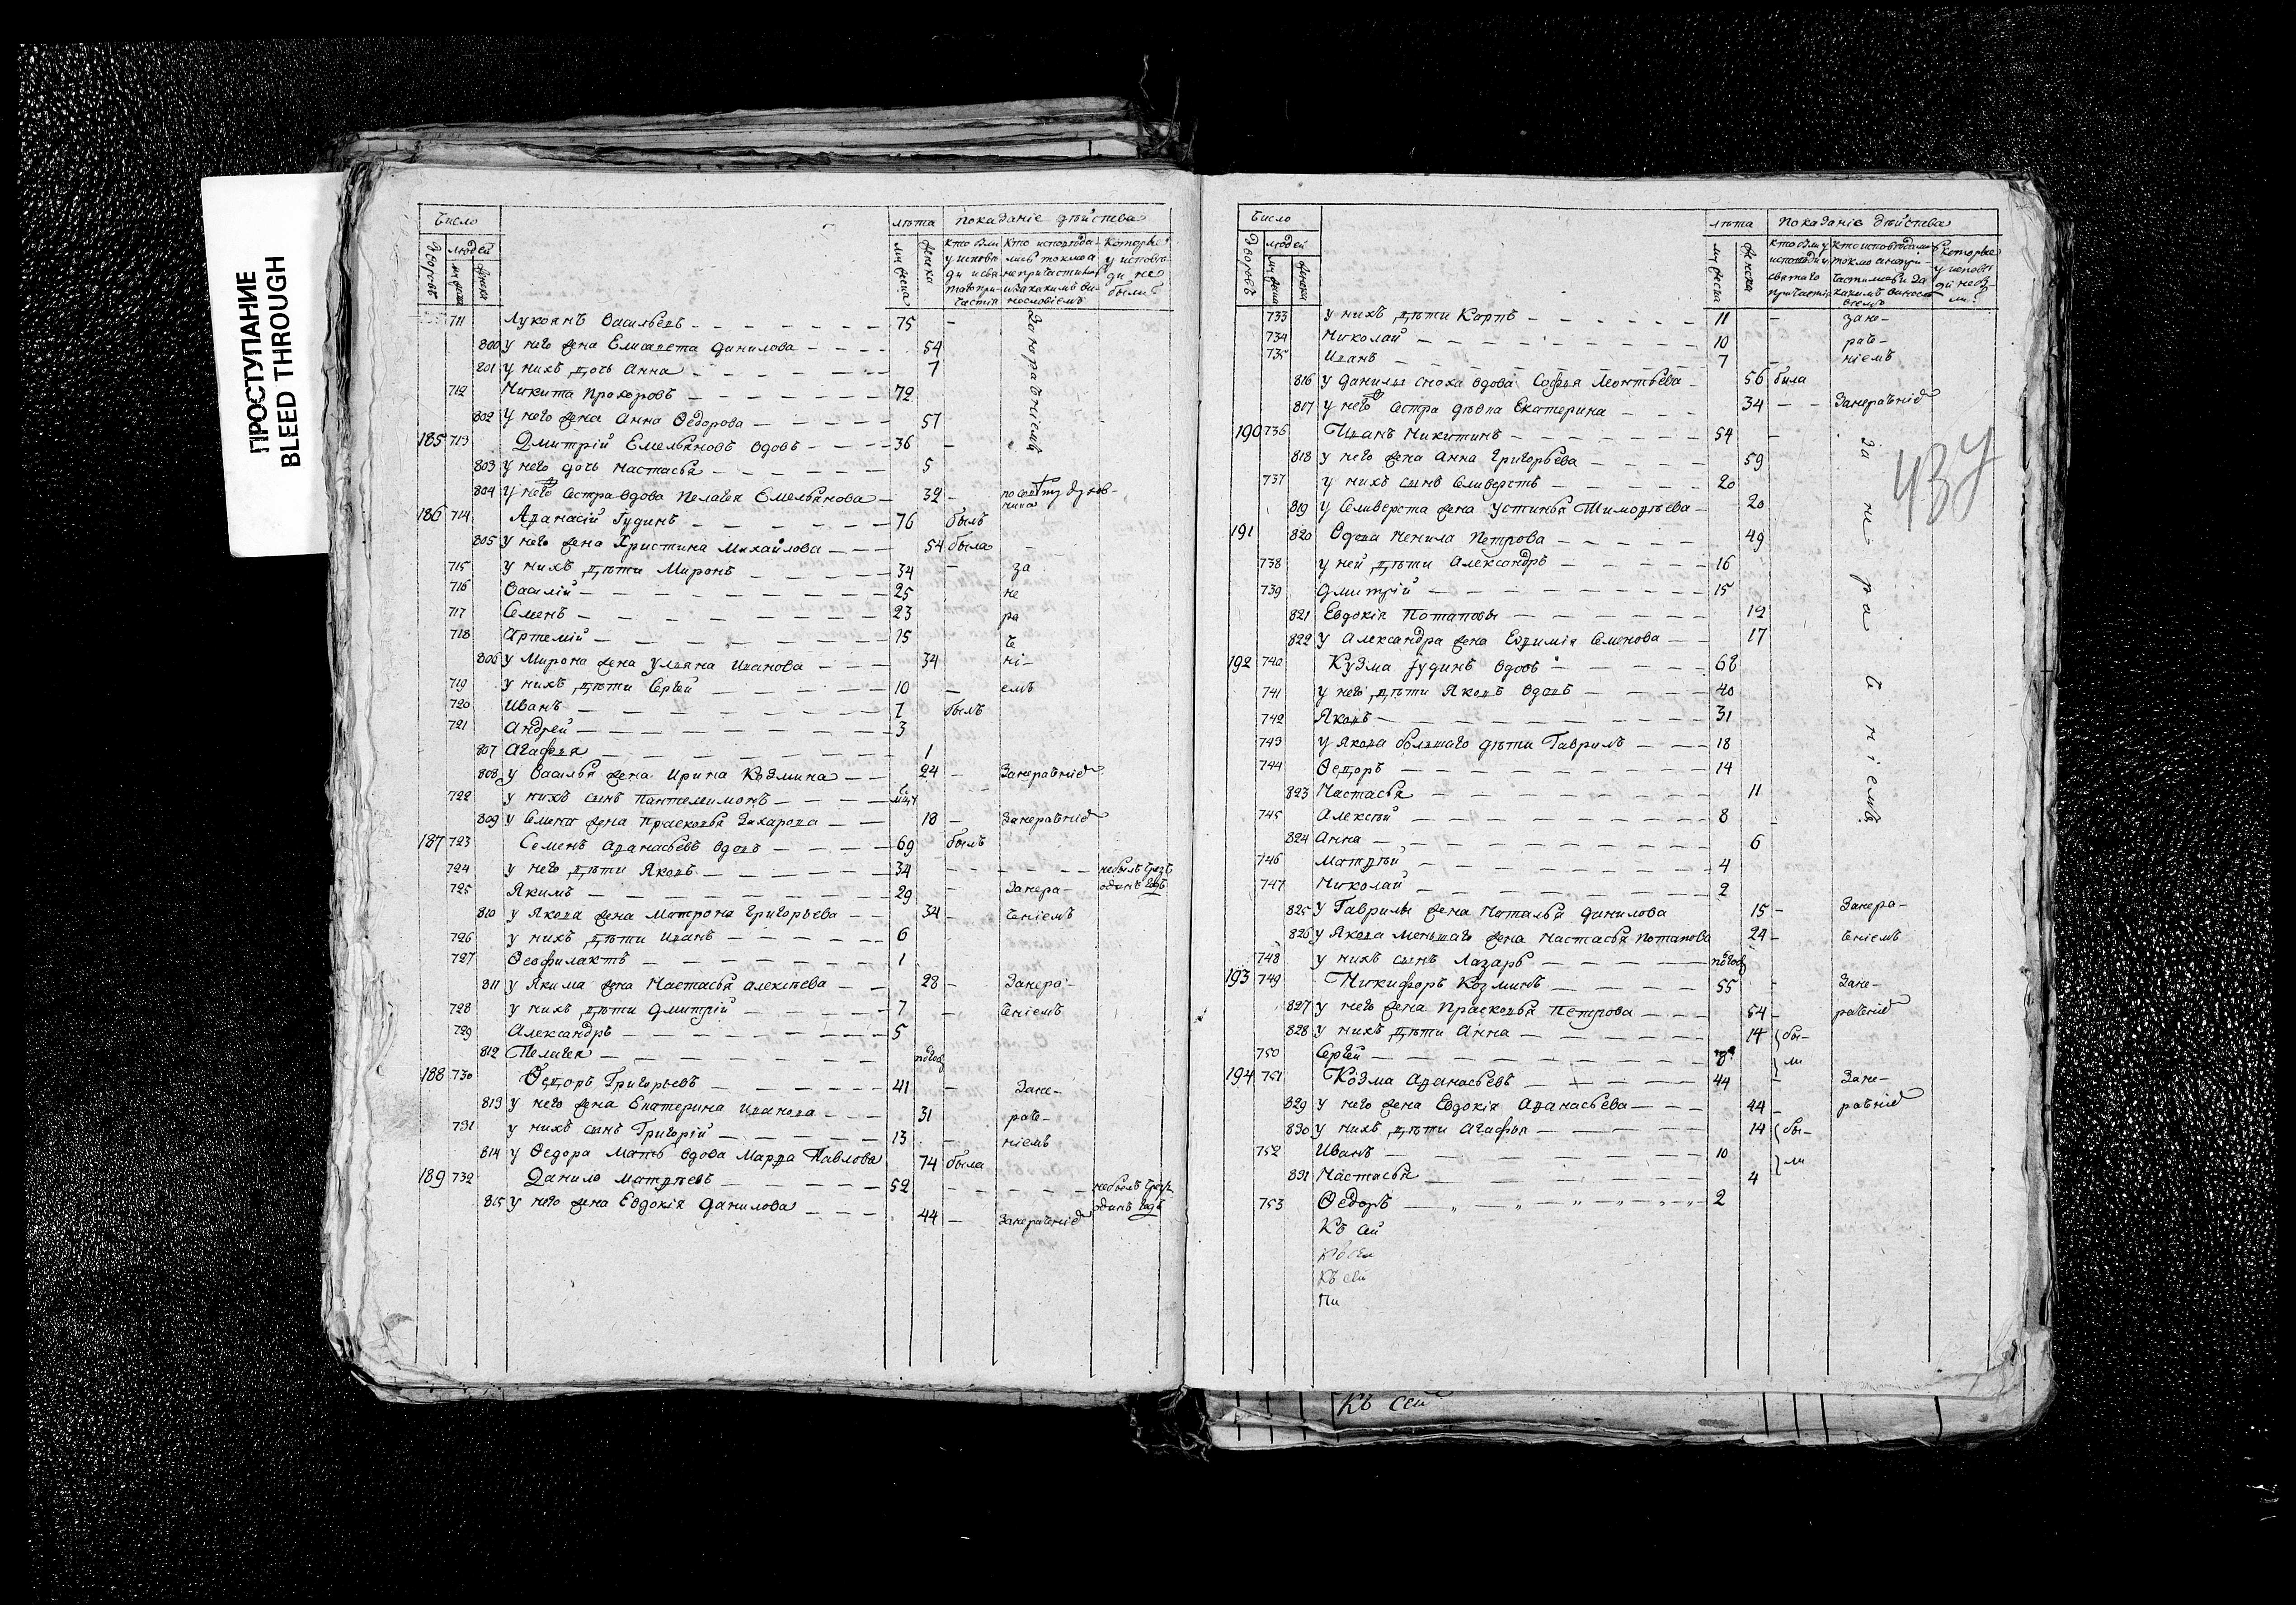 ПРОСТУПАНИЕ
BLEED THROUGH
Число лѣта показаніе дѣйства
дворовъ людей мужеска женска
мужеска женска
кто были у исповѣди и святаго причастія
кто исповѣдались токмо а не причастились и за какимъ винословіемъ
которые у исповѣди не были
711 Лукоянъ Васильевъ 75 - За нерачѣніемъ
800 у него жена Елисавета Данилова 54
801 у нихъ дочь Анна 7
712 Никита Прохоровъ 72
802 у него жена Анна Ѳедорова 57
185 713 Дмитрій Емельяновъ вдовъ 36 -
803 у него дочь Настасья 5
804 у него сестра вдова Пелагея Емельянова 32 - по совѣту духовника
186 714 Аѳанасій Гудинъ 76 былъ
805 у него жена Христина Михайлова 54 была
715 у нихъ дѣти Миронъ 34 - за
716 Василій 25 не
717 Семенъ 23 ра
718 Артемій 15 ч
806 у Мирона жена Ульяна Иванова 34 ні-
719 у нихъ дѣти Сергей 10 - емъ
720 Иванъ 7 былъ
721 Андрей 3
807 Агафья 1
808 у Василья жена Ирина Козмина 24 - Занерачніе
722 у нихъ сынъ Пантелеимонъ
809 у Семена жена Прасковья Захарова 18 - Занерачніе
187 723 Семенъ Аѳанасьевъ вдовъ 69 былъ
724 у него дѣти Яковъ 34 - - - - - - небылъ чрезъ
725 Якимъ 29 - Занера- одинъ годъ
810 у Якова жена Матрона Григорьева 34 - чніемъ
726 у нихъ дѣти Иванъ 6
727 Ѳеофилактъ 1
811 у Якима жена Настасья Алексѣева 28 - Занера-
728 у нихъ дѣти Дмитрій 7 - чніемъ
729 Александръ 5
812 Пелагея погод
188 730 Ѳедоръ Григорьевъ 41 - Зане-
813 у него жена Екатерина Иванова 31 рач-
731 у нихъ сынъ Григорій 13 - ніемъ
814 у Ѳедора мать вдова Марѳа Павлова 74 была
189 732 Данило Матѳѣевъ 52 - - - - - небылъ чрезъ
815 у него жена Евдокія Данилова 44 - Занерачніе одинъ годъ
Число лѣта показаніе дѣйства
дворовъ людей мужеска женска
мужеска женска
кто были у исповѣди и святаго причастія
кто исповѣдались токмо а не причастились и за какимъ винословіемъ
которые у исповѣди не были
733 у нихъ дѣти Карпъ 11 - зане-
734 Николай 10 рач-
735 Иванъ 7 - ніемъ
816 у Данилы сноха вдова Софья Леонтьева 56 была
817 у него сестра дѣвка Екатерина 34 - - Занерачніе
190 736 Иванъ Никитинъ 54 - за нерачніемъ
437
818 у него жена Анна Григорьева 59
737 у нихъ сынъ Селиверстъ 20
819 у Селиверста жена Устинья Тимоѳѣева 20
191 820 Вдова Ненила Петрова 49
738 у ней дѣти Александръ 16
739 Дмитрій 15
821 Евдокія Потаповы 12
822 у Александра жена Евѳимія Семенова 17
192 740 Кузма Гудинъ вдовъ 68
741 у него дѣти Яковъ вдовъ 40
742 Яковъ 31
743 у Якова большаго дѣти Гаврилъ 18
744 Ѳедоръ 14
823 Настасья 11
745 Алексѣй 8
824 Анна 6
746 Матѳѣй 4
747 Николай 2
825 у Гаврилы жена Наталья Данилова 15 - Занера-
826 у Якова меньшаго жена Настасья Потапова 24 - чніемъ
748 у нихъ сынъ Лазарь погод
193 749 Никифоръ Козминъ 55 - Зане-
827 у него жена Прасковья Петрова 54 - рачніе
828 у нихъ дѣти Анна 14 бы-
750 Сергей ли
194 751 Козма Аѳанасьевъ 44 - Зане-
829 у него жена Евдокія Аѳанасьева 44 - рачніе
830 у нихъ дѣти Агафья 14 бы-
752 Иванъ 10 ли
831 Настасья 4
753 Ѳедоръ 2
Къ сей
Къ сей
Къ сей
Пи
Къ сей